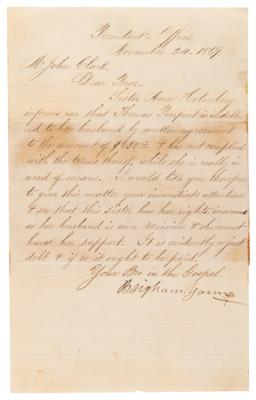 President's Office
November 24. 1869
Mr John Clark
Dear Bro.
Sister Ann
informs me that Thomas Pierpont is indebt
ed to her husband by written agreement
to the amount of & has not complied
with the terms thereof, while she is really in
need of means. I would like you therefore
to give this matter your immediate attention
& see that this sister has her rights, inasmuch
as her husband is on a Mission & she must
have her support. It is evidently a just
debt & if so it ought to be paid.
Your Bro in the Gospel.
Brigham Young